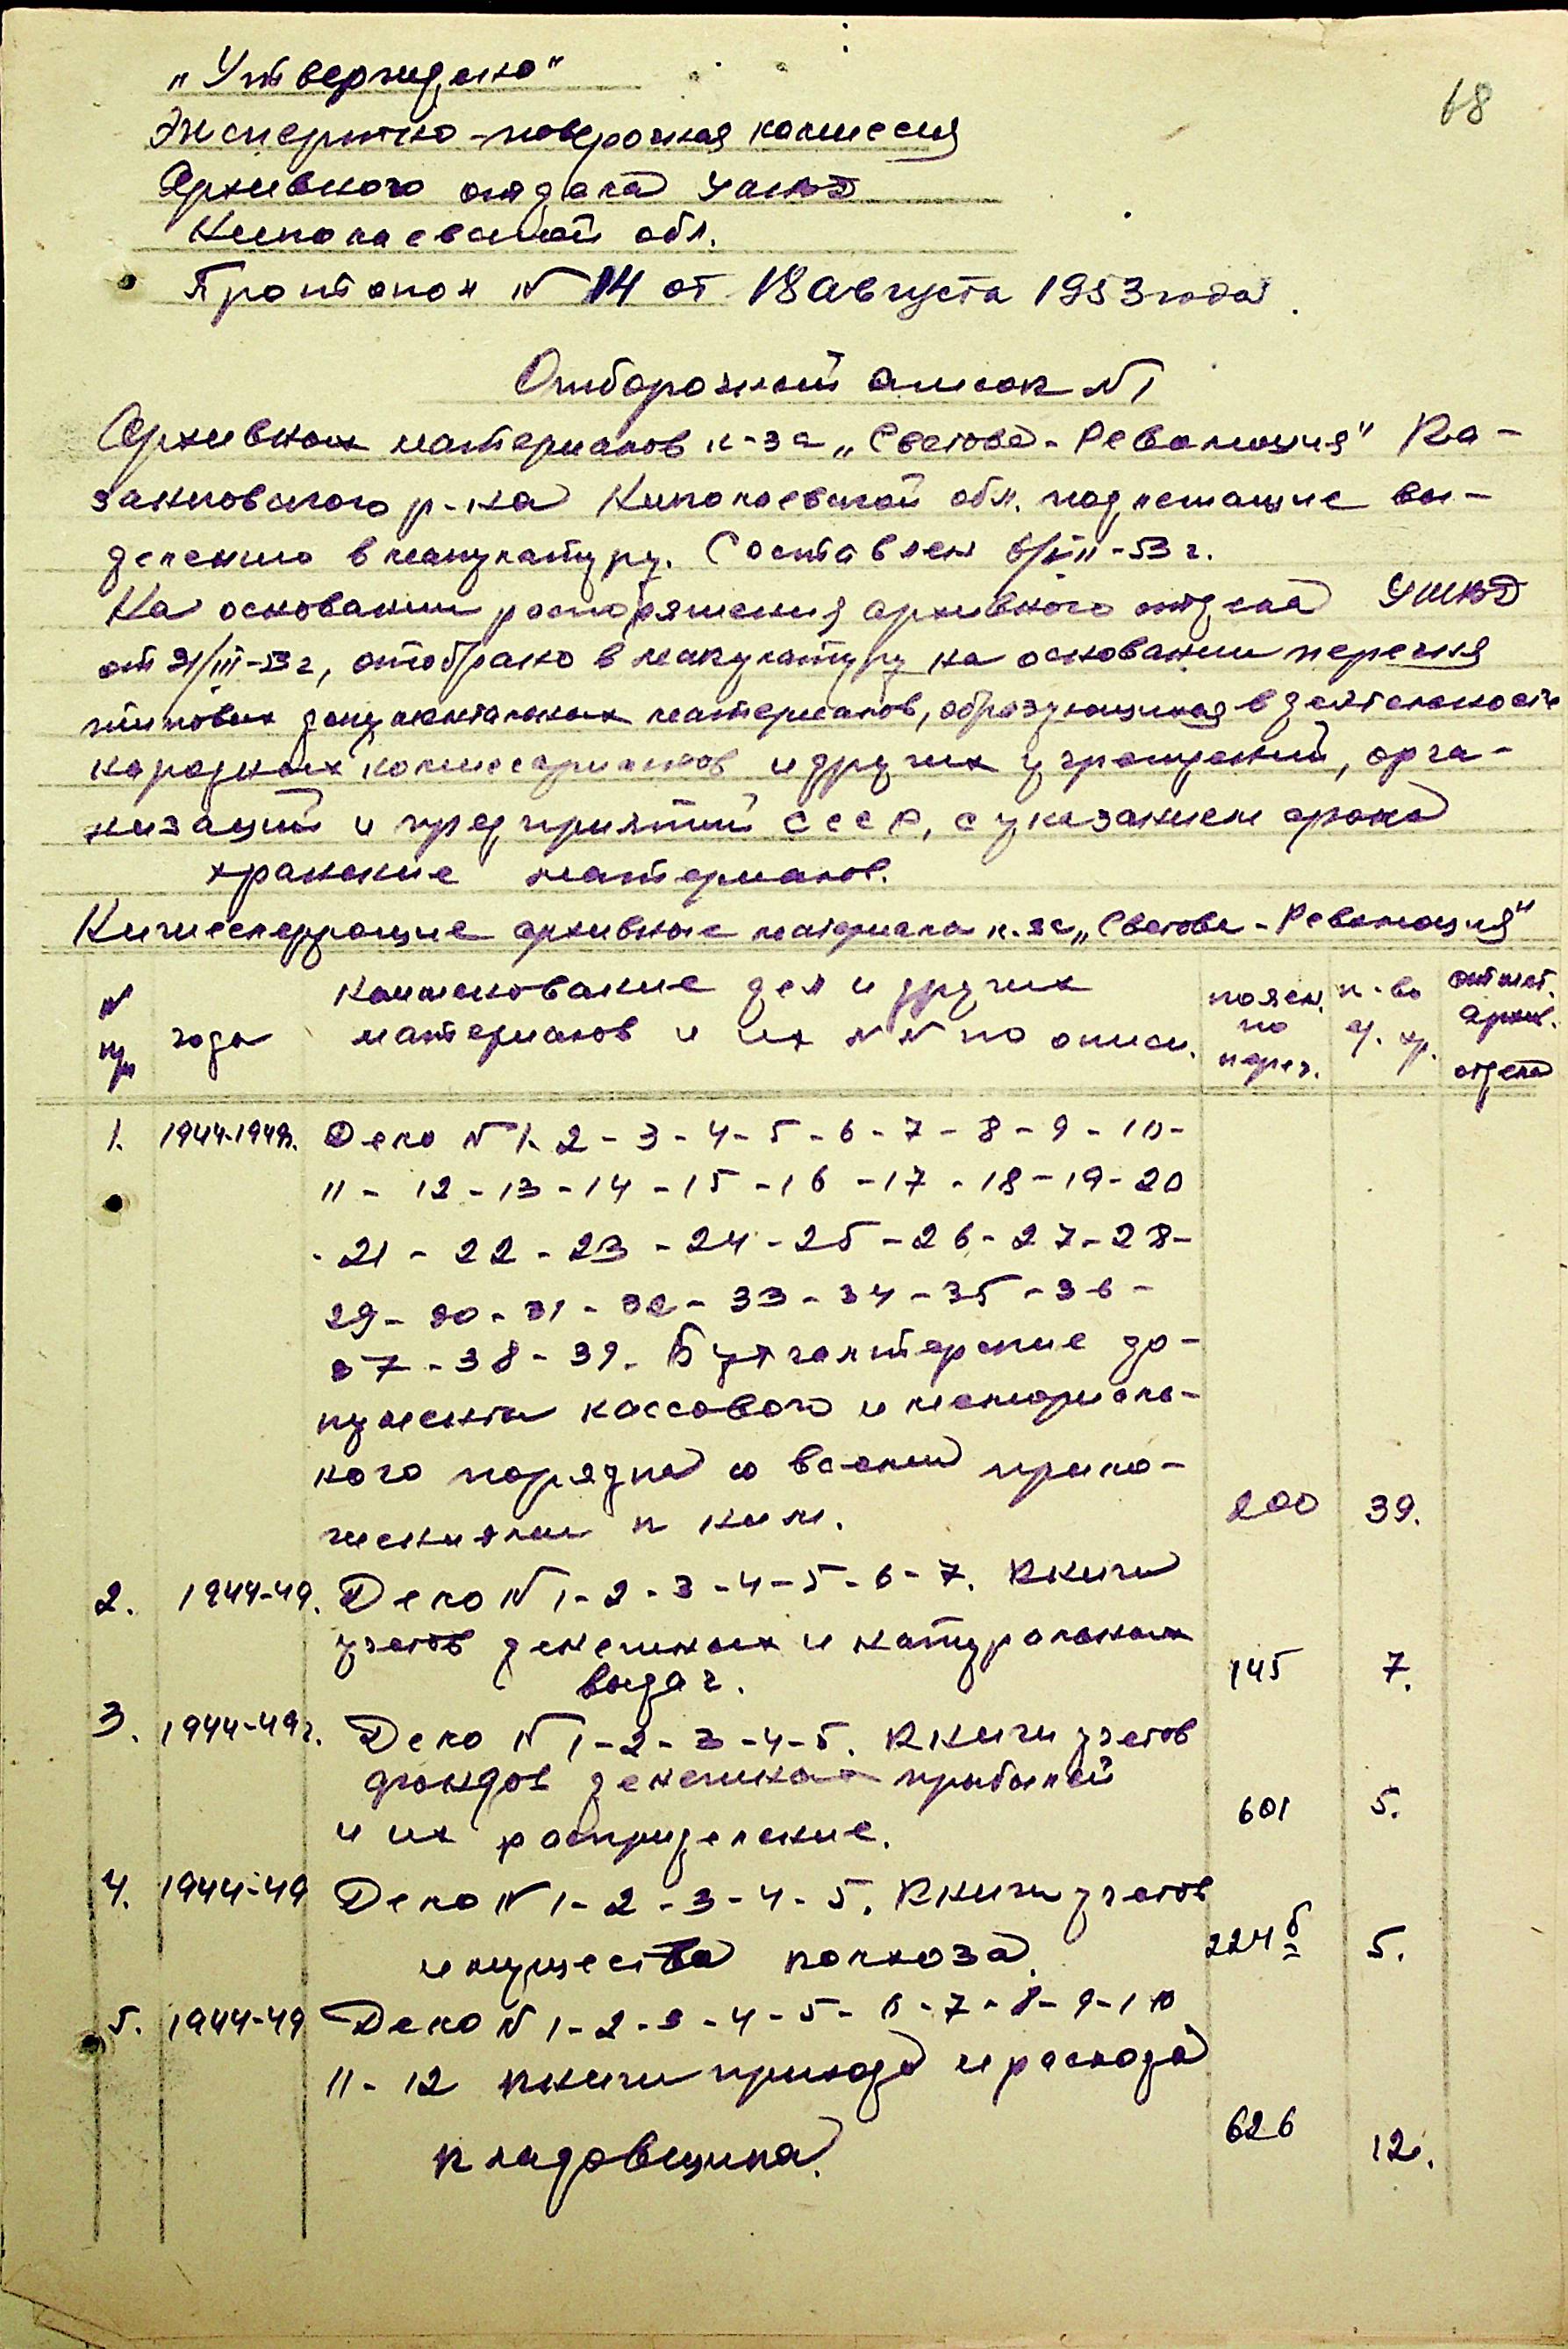 68
„Утверждено"
Экспертно-поверочная комиссия
Архивного отдела УМВД
Николаевской обл.
Протокол № 14 от 18 августа 1953 года.
Отборочный список №1
Архивных материалов к-за „Светова-Революция" Ка-
занковского р-на Николаевской обл. подлежащие вы-
делению в макулатуру. Составлен 6/VIII-53 г.
На основании роспоряжения архивного отдела УМВД
от 21/III-53 г, отобрано в макулатуру на основании перечня
типових документальных материалов, образующихся в деятельности
народных комиссариатов и других учреждений, орга-
низаций и предприятий СССР, с указанием срока
хранение материалов.
Нижеследующие архивные материала к-за „Светова-Революция"
№ пп
года
Наименование дел и других
материалов и их №№ по описи.
поясн. по переч.
к-во ед. хр.
отмет. архив. отдела
1. 1944-1949г. Дело №1-2-3-4-5-6-7-8-9-10-
11-12-13-14-15-16-17-18-19-20
-21-22-23-24-25-26-27-28-
29-30-31-32-33-34-35-36-
37-38-39. Бухгалтерские до-
кументы кассового и материаль-
ного порядка со всеми прило-
жениями к ним. 200 39.
2. 1944-49. Дело №1-2-3-4-5-6-7. Книги
учетов денежных и натуральных
выдач. 145 7.
3. 1944-49г. Дело №1-2-3-4-5. Книги учетов
фондов денежных прибылей
и их роспределение. 601 5.
4. 1944-49 Дело №1-2-3-4-5. Книги учетов
имущества колхоза. 224б 5.
5. 1944-49 Дело №1-2-3-4-5-6-7-8-9-10
11-12 книги прихода и расхода
кладовщика. 626 12.